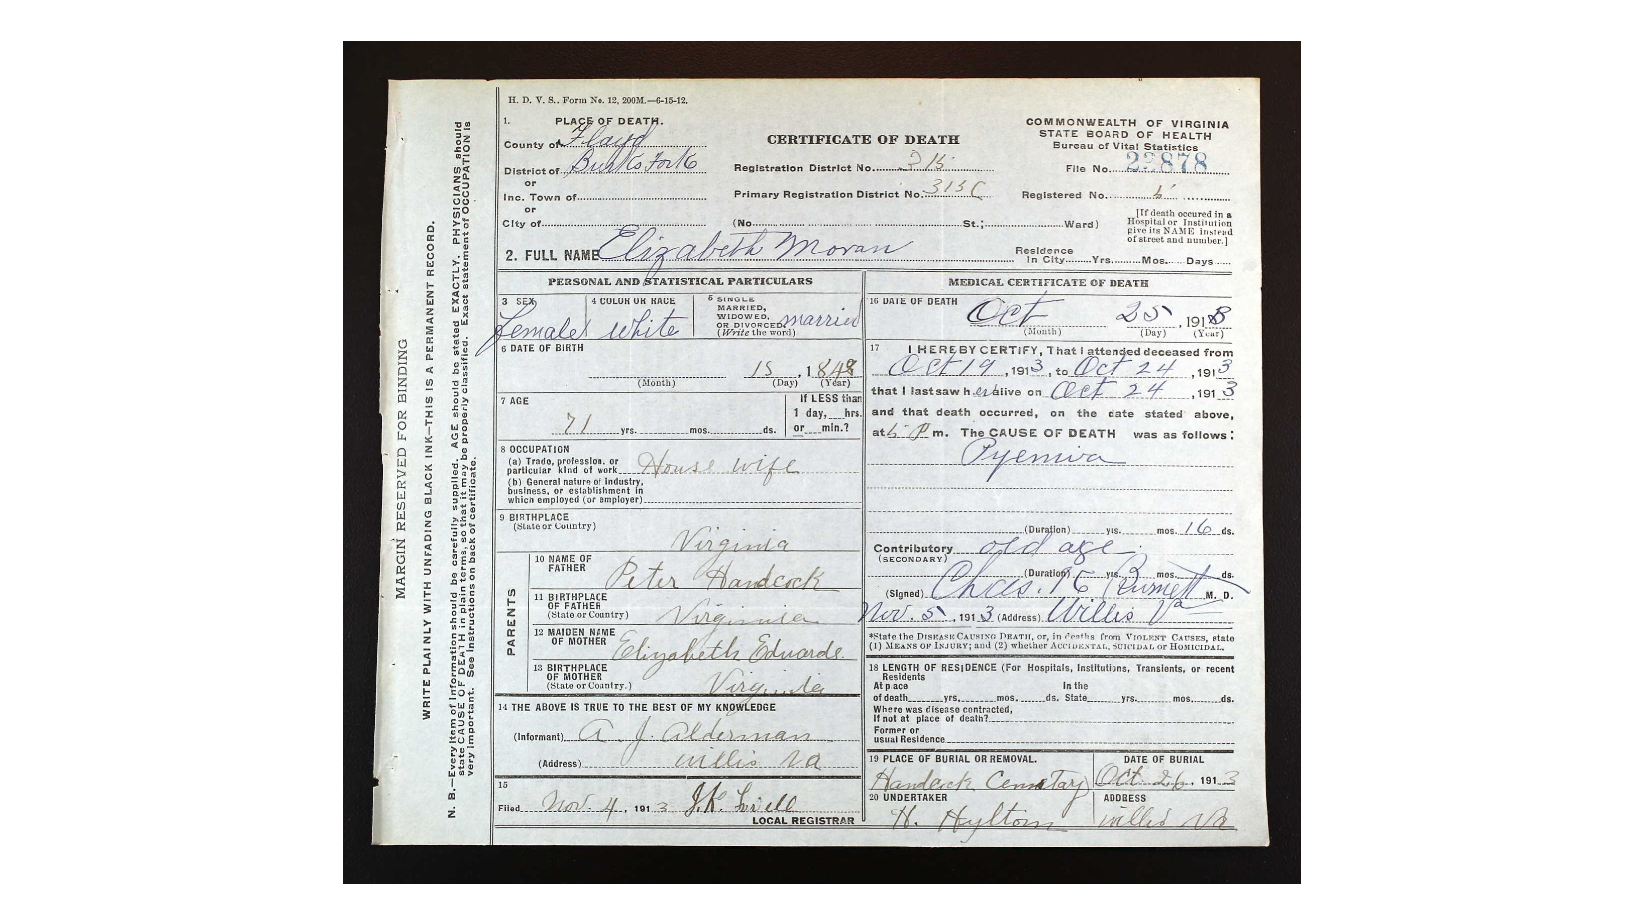 H. D. V. S., Form No. 12, 200M.—6-15-12.
1. PLACE OF DEATH.
County of Floyd
District of Burks Fork
or
Inc. Town of
or
City of
CERTIFICATE OF DEATH
Registration District No. 315
Primary Registration District No. 315C
(No. St.; Ward)
COMMONWEALTH OF VIRGINIA
STATE BOARD OF HEALTH
Bureau of Vital Statistics
File No. 23878
Registered No. 6
[If death occured in a
Hospital or Institution
give its NAME instead
of street and number.]
2. FULL NAME Elizabeth Moran
Residence
In City Yrs. Mos. Days
PERSONAL AND STATISTICAL PARTICULARS
3 SEX
female
4 COLOR OR RACE
white
5 SINGLE
MARRIED,
WIDOWED,
OR DIVORCED, married
(Write the word)
6 DATE OF BIRTH
15, 1848
(Month) (Day) (Year)
7 AGE
71 yrs. mos. ds.
If LESS than
1 day, hrs.
or min.?
8 OCCUPATION
(a) Trade, profession, or
particular kind of work House wife
(b) General nature of Industry,
business, or establishment in
which employed (or employer)
9 BIRTHPLACE
(State or Country)
Virginia
PARENTS
10 NAME OF
FATHER
Peter Handcock
11 BIRTHPLACE
OF FATHER
(State or Country) Virginia
12 MAIDEN NAME
OF MOTHER
Elizabeth Edwards
13 BIRTHPLACE
OF MOTHER
(State or Country.) Virginia
14 THE ABOVE IS TRUE TO THE BEST OF MY KNOWLEDGE
(Informant) A. J. Alderman
(Address) willis Va
15
Filed Nov. 4, 1913 J.K.
LOCAL REGISTRAR
MEDICAL CERTIFICATE OF DEATH
16 DATE OF DEATH
Oct 25, 1913
(Month) (Day) (Year)
17 I HEREBY CERTIFY, That I attended deceased from
Oct 19, 1913, to Oct 24, 1913
that I last saw her alive on Oct 24, 1913
and that death occurred, on the date stated above,
at 6 P m. The CAUSE OF DEATH was as follows:
Pyemia
(Duration) yrs. mos. 16 ds.
Contributory old age
(SECONDARY)
(Duration) yrs. mos. ds.
(Signed) Chas. Burnett M. D.
Nov. 5, 1913 (Address) Willis Va
*State the DISEASE CAUSING DEATH, or, in deaths from VIOLENT CAUSES, state
(1) MEANS OF INJURY; and (2) whether ACCIDENTAL, SUICIDAL or HOMICIDAL.
18 LENGTH OF RESIDENCE (For Hospitals, Institutions, Transients, or recent
Residents
At place In the
of death yrs. mos. ds. State yrs. mos. ds.
Where was disease contracted,
If not at place of death?
Former or
usual Residence
19 PLACE OF BURIAL OR REMOVAL.
Handcock Cemetary
DATE OF BURIAL
Oct 26, 1913
20 UNDERTAKER
H. Hylton
ADDRESS
willis Va
MARGIN RESERVED FOR BINDING
WRITE PLAINLY WITH UNFADING BLACK INK—THIS IS A PERMANENT RECORD.
N. B.—Every item of information should be carefully supplied. AGE should be stated EXACTLY. PHYSICIANS should
state CAUSE OF DEATH in plain terms, so that it may be properly classified. Exact statement of OCCUPATION is
very important. See instructions on back of certificate.